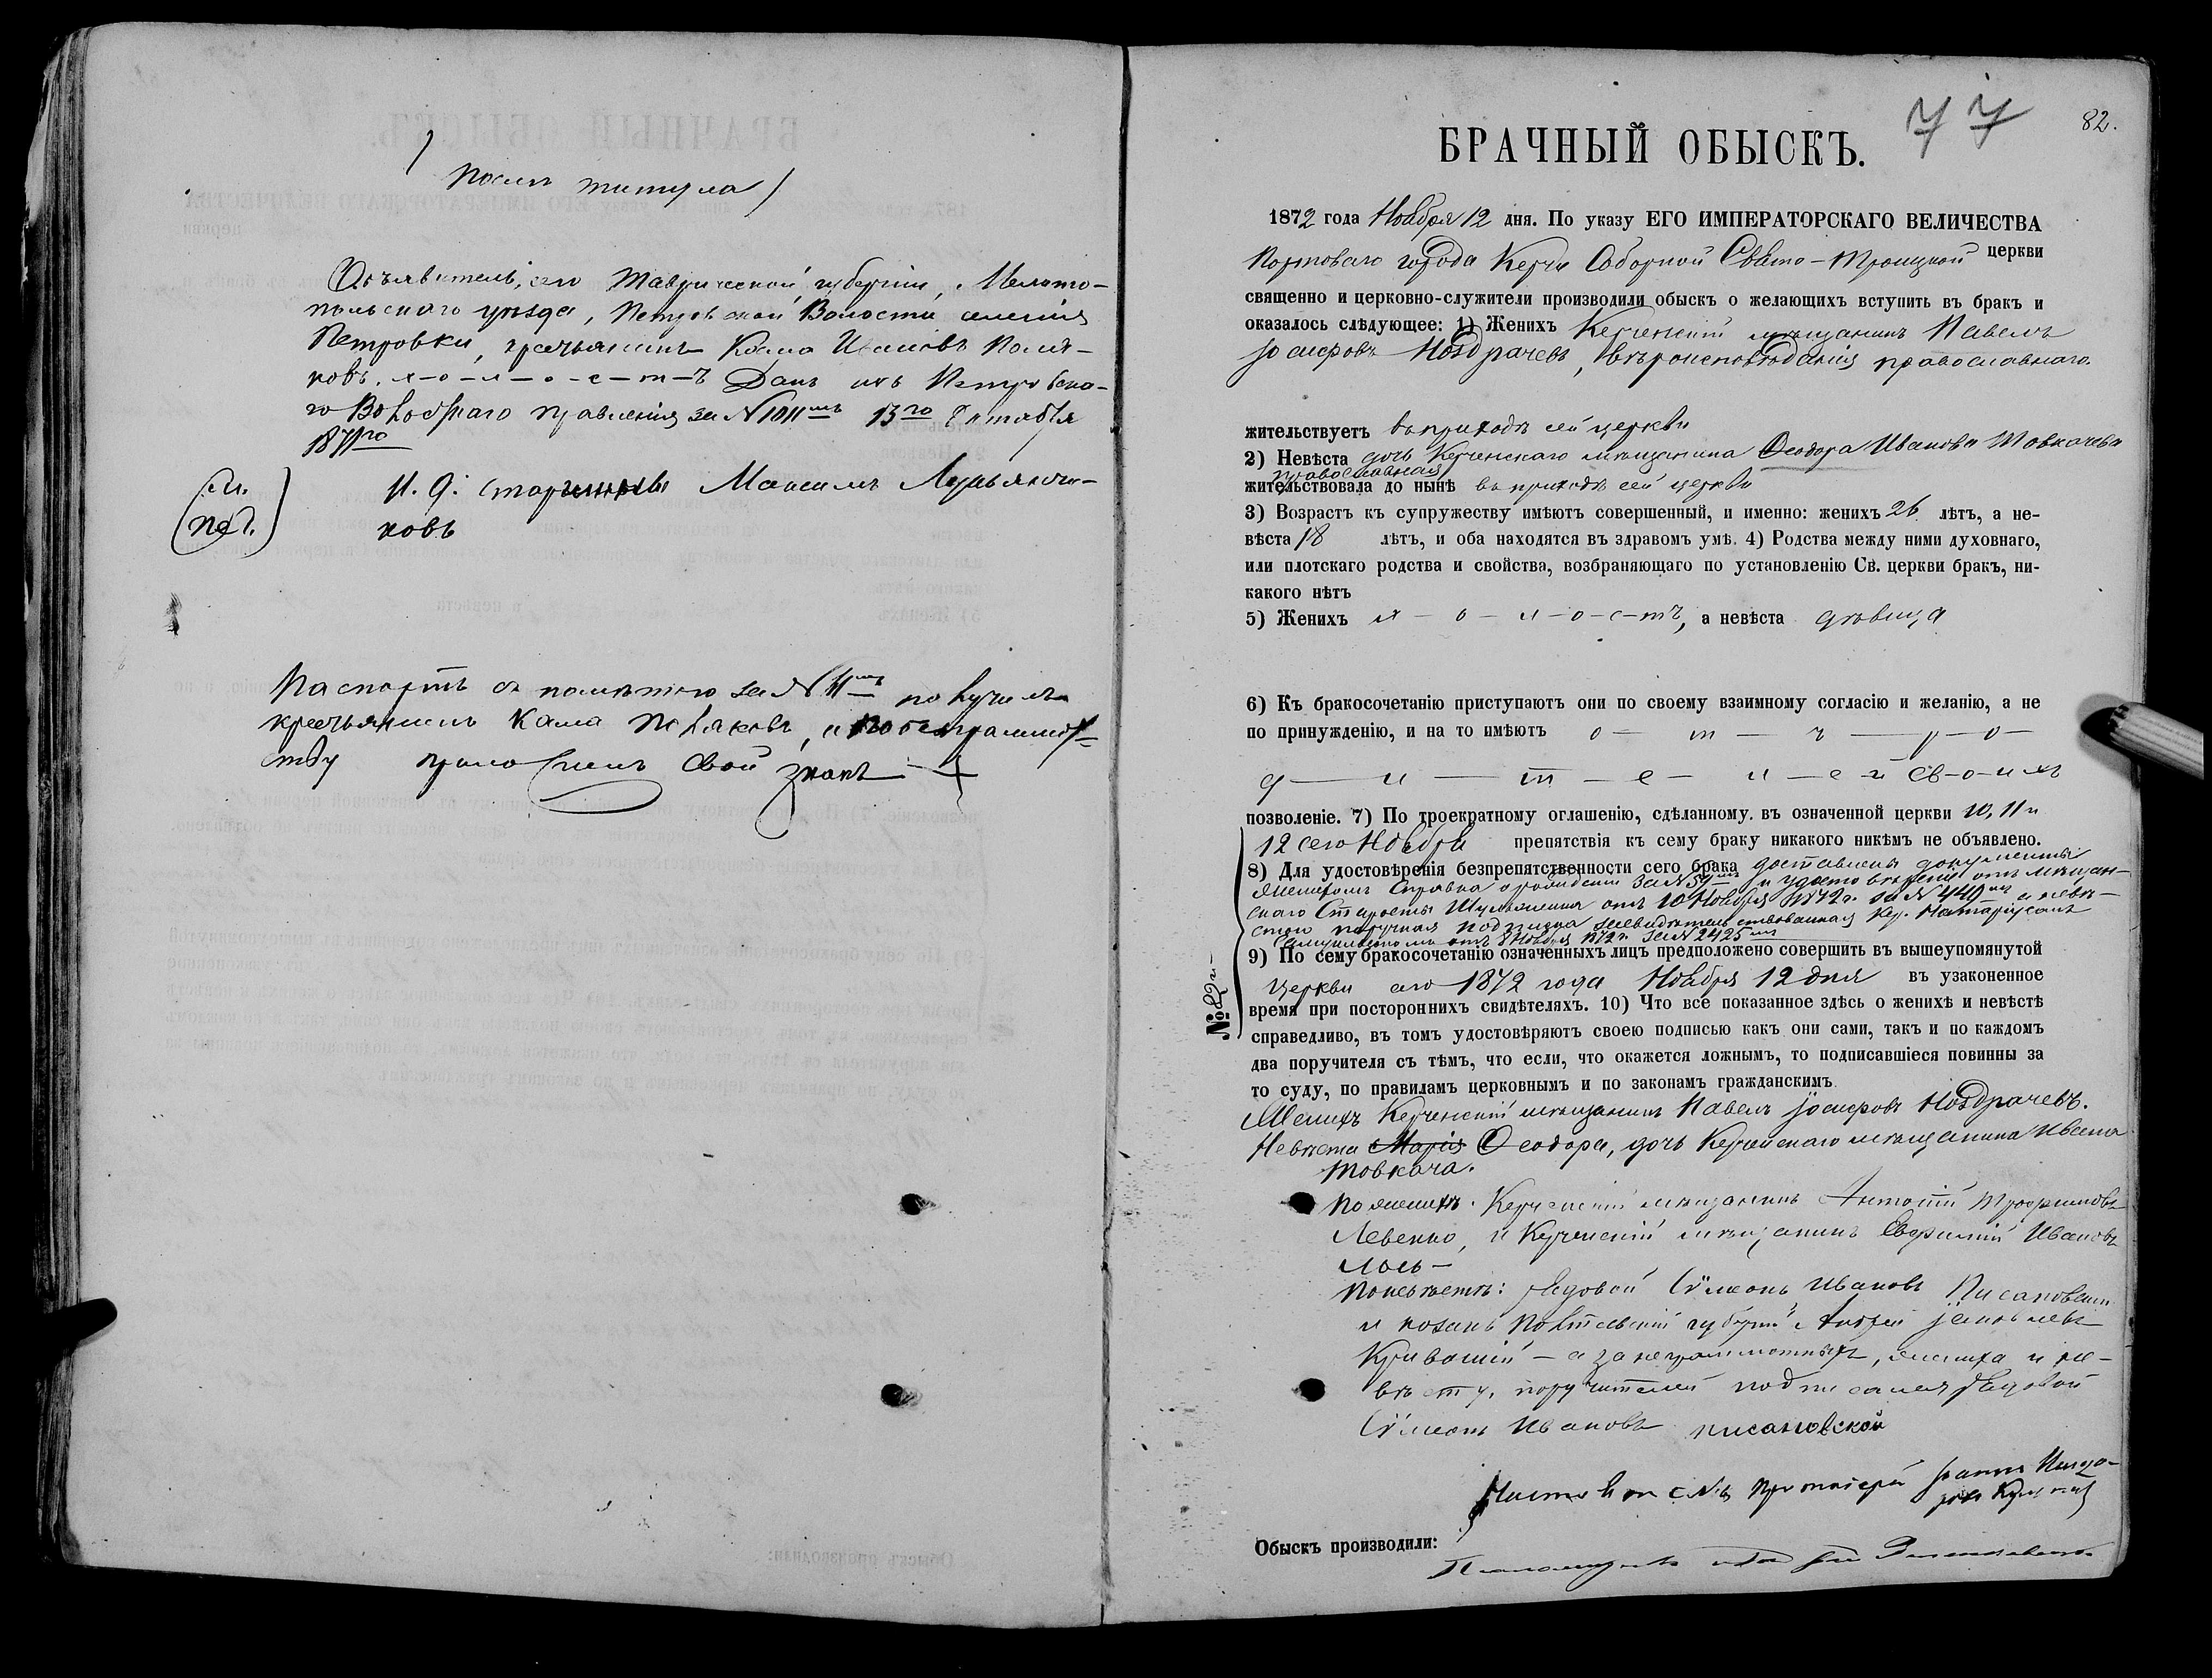 ( послѣ титула )
Объявитель сего Таврической губерніи, Мелито-
польскаго уѣзда, Петровской Волости селенія
Петровки, крестьянинъ Косма Ивановъ Поля-
ковъ. х-о-л-о-с-т-ъ Данъ изъ Петровска-
го Волостнаго правленія за № 1011мъ 13го Октября
1871го
И. д. старшины Максимъ
ковъ
(М.
печ.)
Паспортъ съ помѣтою за № 11мъ получилъ
крестьянинъ Козма Поляковъ, и по безграмот-
ству приложилъ свой знакъ +
77
82.
БРАЧНЫЙ ОБЫСКЪ.
1872 года Ноября 12 дня. По указу ЕГО ИМПЕРАТОРСКАГО ВЕЛИЧЕСТВА
Портоваго города Керчи Соборной Свято-Троицкой церкви
священно и церковно-служители производили обыскъ о желающихъ вступить въ бракъ и
оказалось слѣдующее: 1) Женихъ Керченскій мѣщанинъ Павелъ
Іосифовъ Ноздрачевъ, вѣроисповѣданія православнаго.
жительствуетъ въ приходѣ сей церкви
2) Невѣста дочь Керченскаго мѣщанина Ѳеодора Иванова Товкачева
православная
жительствовала до нынѣ въ приходѣ сей церкви
3) Возрастъ къ супружеству имѣютъ совершенный, и именно: женихъ 26 лѣтъ, а не-
вѣста 18 лѣтъ, и оба находятся въ здравомъ умѣ. 4) Родства между ними духовнаго,
или плотскаго родства и свойства, возбраняющаго по установленію Св. церкви бракъ, ни-
какого нѣтъ
5) Женихъ х — о — л — о — с — тъ, а невѣста дѣвица
6) Къ бракосочетанію приступаютъ они по своему взаимному согласію и желанію, а не
по принужденію, и на то имѣютъ о —
д — и — т — е — л — е й св-о-и хъ
позволеніе. 7) По троекратному оглашенію, сдѣланному въ означенной церкви 10, 11 и
12 сего Ноября препятствія къ сему браку никакого никѣмъ не объявлено.
8) Для удостовѣренія безпрепятственности сего брака доставлены документы
женихомъ справка о рожденіи за № 54мъ и удостовѣреніе отъ мѣщан-
скаго Старосты Шульженка отъ 10 Ноября 1872 г. за № 440мъ а невѣ-
стою поручная подписка засвидѣтельствованная Кер. Натаріусомъ
отъ 8 Ноября 1872 г. за № 2425мъ
№ 82й
9) По сему бракосочетанію означенныхъ лицъ предположено совершить въ вышеупомянутой
церкви сего 1872 года Ноября 12 дня въ узаконенное
время при постороннихъ свидѣтеляхъ. 10) Что все показанное здѣсь о женихѣ и невѣстѣ
справедливо, въ томъ удостовѣряютъ своею подписью какъ они сами, такъ и по каждомъ
два поручителя съ тѣмъ, что если, что окажется ложнымъ, то подписавшіеся повинны за
то суду, по правиламъ церковнымъ и по законамъ гражданскимъ.
Женихъ Керченскій мѣщанинъ Павелъ Іосифовъ Ноздрачевъ.
Невѣста Марія Ѳеодора, дочь Керченскаго мѣщанина Ивана
Товкача.
По женихѣ. Керченскій мѣщанинъ Антоній Трофимовъ
Левенко, и Керченскій мѣщанинъ Евфимій Ивановъ
Лось —
По невѣстѣ: Рядовой Сѵмеонъ Ивановъ Писановскій
и козакъ Полтавскій губерніи Андрей Іаковлевъ
— а за неграмотныхъ, жениха и не-
вѣсту, поручителей подписался Рядовой
Сѵмеонъ Ивановъ писановской
Настоятель Протоіерей Іоаннъ
Обыскъ производили: